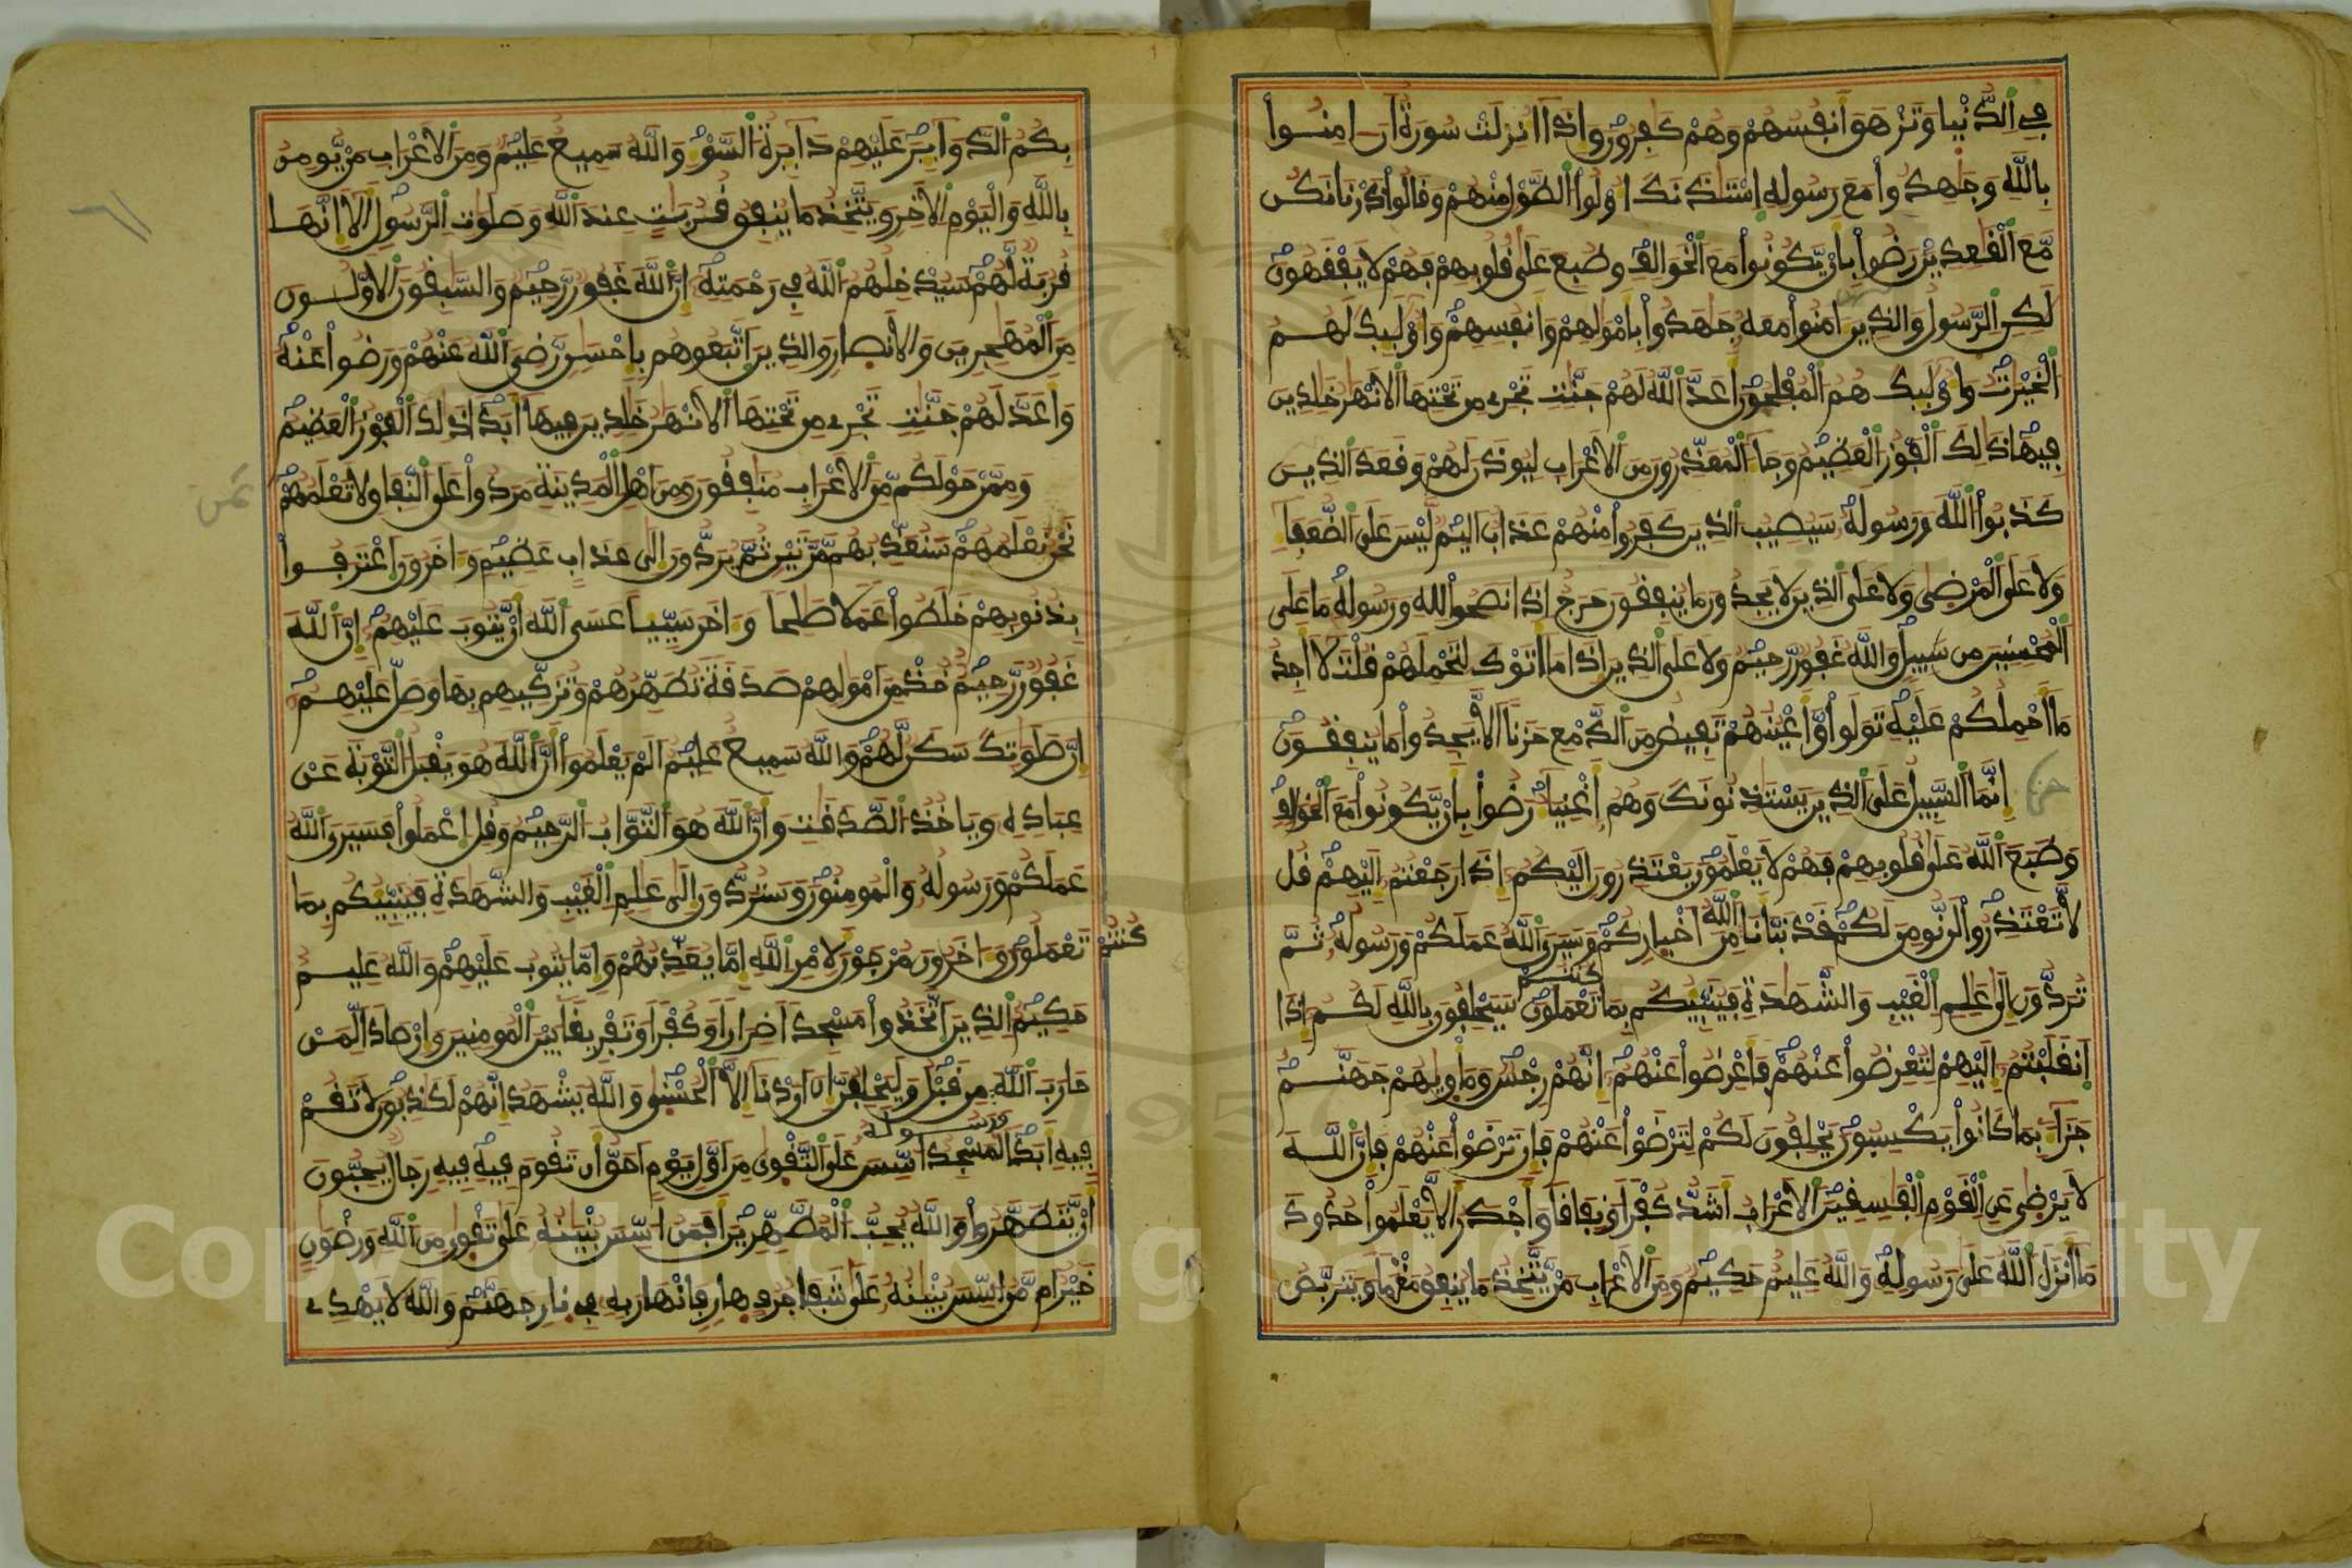 في الدنيا وتزهق أنفسهم وهم كفرون وإذا أنزلت سورة أن امنوا
بالله وجهدوا مع رسوله استئذنك أولوا الطول منهم وقالوا ذرنا نكن
مع القعدين رضوا بأن يكونوا مع الخوالف وطبع على قلوبهم فهم لا يفقهون
لكن الرسول والذين امنوا معه جهدوا بأمولهم وأنفسهم وأوليك لهم
الخيرت وأوليك هم المفلحون أعد الله لهم جنت تجري من تحتها الانهر خلدين
فيها ذلك الفوز العظيم وجا المعذرون من الاعراب ليوذن لهم وقعد الذين
كذبوا الله ورسوله سيصيب الذين كفروا منهم عذاب اليم ليس على الضعفا
ولا على المرضى ولا على الذين لا يجدون ما ينفقون حرج إذا نصحوا لله ورسوله ما على
المحسنين من سبيل والله غفور رحيم ولا على الذين إذا ما أتوك لتحملهم قلت لا أجد
ما أحملكم عليه تولوا وأعينهم تفيض من الدمع حزنا ألا يجدوا ما ينفقون
إنما السبيل على الذين يستذنونك وهم أغنيا رضوا بأن يكونوا مع الخوالف
وطبع الله على قلوبهم فهم لا يعلمون يعتذرون اليكم إذا رجعتم اليهم قل
لا تعتذروا لن نومن لكم قد نبأنا الله من أخباركم وسيرى الله عملكم ورسوله ثم
تردون إلى علم الغيب والشهدة فينبيكم بما كنتم تعملون سيحلفون بالله لكم إذا
انقلبتم اليهم لتعرضوا عنهم فأعرضوا عنهم إنهم رجس ومأويهم جهنم
جزا بما كانوا يكسبون يحلفون لكم لترضوا عنهم فإن ترضوا عنهم فإن الله
لا يرضى عن القوم الفسقين الاعراب أشد كفرا ونفاقا وأجدر ألا يعلموا حدود
ما أنزل الله على رسوله والله عليم حكيم ومن الاعراب من يتخذ ما ينفق مغرما ويتربص
بكم الدواير عليهم دايرة السو والله سميع عليم ومن الاعراب من يومن
بالله واليوم الاخر ويتخذ ما ينفق قربت عند الله وصلوت الرسول ألا إنها
قربة لهم سيدخلهم الله في رحمته إن الله غفور رحيم والسبقون الاولون
من المهجرين والانصار والذين اتبعوهم بإحسن رضي الله عنهم ورضوا عنه
وأعد لهم جنت تجري من تحتها الانهر خلدين فيها أبدا ذلك الفوز العظيم
وممن حولكم من الاعراب منفقون ومن أهل المدينة مردوا على النفاق لا تعلمهم
نحن نعلمهم سنعذبهم مرتين ثم يردون إلى عذاب عظيم واخرون اعترفوا
بذنوبهم خلطوا عملا صلحا واخر سييا عسى الله أن يتوب عليهم إن الله
غفور رحيم خذ من أمولهم صدقة تطهرهم وتزكيهم بها وصل عليهم
إن صلوتك سكن لهم والله سميع عليم ألم يعلموا أن الله هو يقبل التوبة عن
عباده وياخذ الصدقت وأن الله هو التواب الرحيم وقل اعملوا فسيرى الله
عملكم ورسوله والمومنون وستردون إلى علم الغيب والشهدة فينبيكم بما
كنتم تعملون واخرون مرجون لامر الله إما يعذبهم وإما يتوب عليهم والله عليم
حكيم الذين اتخذوا مسجدا ضرارا وكفرا وتفريقا بين المومنين وإرصادا لمن
حارب الله ورسوله من قبل وليحلفن إن أردنا إلا الحسنى والله يشهد إنهم لكذبون لا تقم
فيه أبدا لمسجد أسس على التقوى من أول يوم أحق أن تقوم فيه فيه رجال يحبون
أن يتطهروا والله يحب المطهرين أفمن أسس بنينه على تقوى من الله ورضون
خير أم من أسس بنينه على شفا جرف هار فانهار به في نار جهنم والله لا يهدي
Copyright © King Saud University